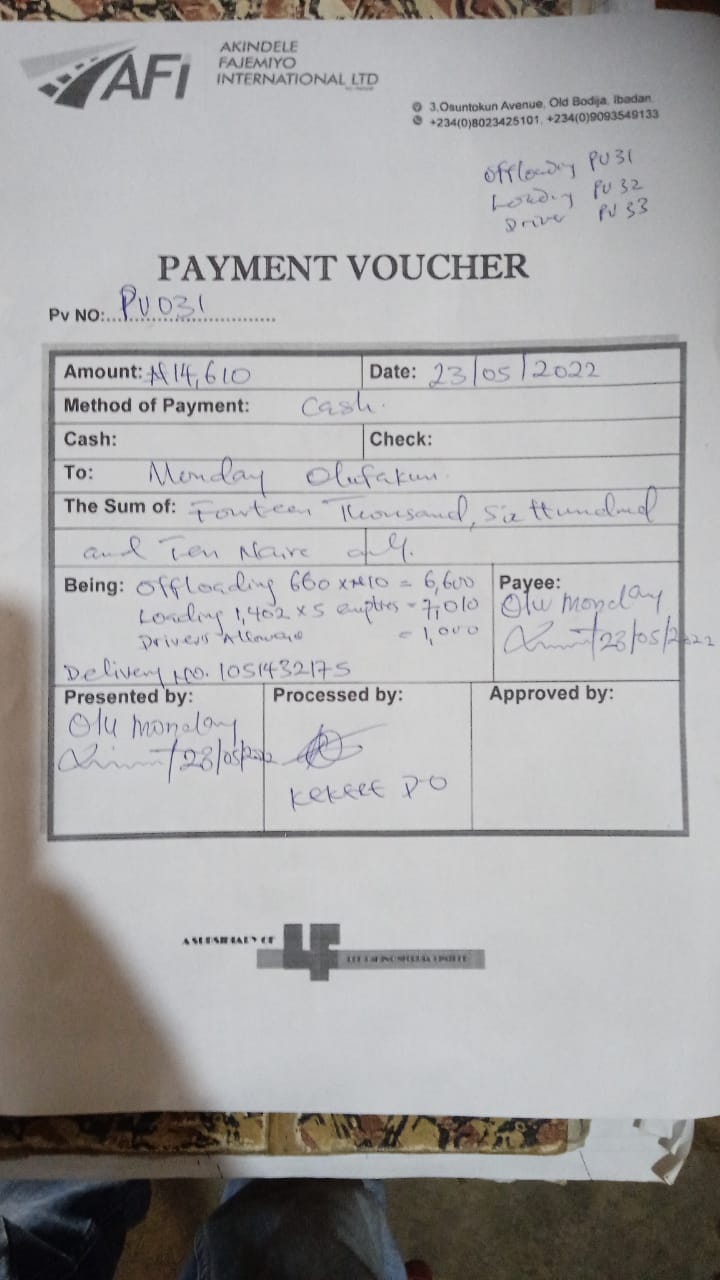 AFI
AKINDELE
FAJEMIYO
INTERNATIONAL LTD
3,Osuntokun Avenue, Old Bodija, Ibadan.
+234(0)8023425101, +234(0)9093549133
Offloading PU31
Loading PU 32
Driver PU 33
PAYMENT VOUCHER
Pv NO:..PV031
Amount: ₦14,610 Date: 23/05/2022
Method of Payment: Cash.
Cash: Check:
To: Monday Olufakun.
The Sum of: Fourteen Thousand, Six Hundred
and Ten Naira only.
Being: Offloading 660 x ₦10 = 6,600
Loading 1,402 x 5 empties = 7,010
Drivers Allowance = 1,000
Delivery No. 1051432175
Payee:
Olu Monday
23/05/2022
Presented by: Processed by: Approved by:
Olu Monday
23/05/2022
KEKERE D-O
A SUBSIDIARY OF LF